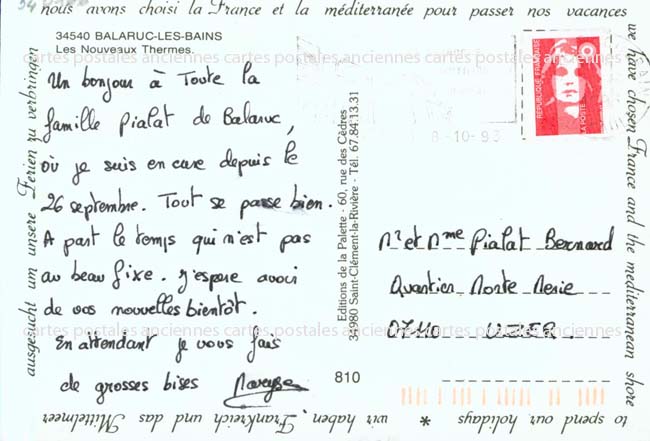 nous avons choisi la France et la méditerranée pour passer nos vacances
we have chosen France and the mediterranean shore
to spend our holidays * wir haben Frankreich und das Mittelmeer
ausgesucht um unsere Ferien zu verbringen
34540 BALARUC-LES-BAINS
Les Nouveaux Thermes.
Un bonjour à Toute la
famille Pialat de Balaruc,
où je suis en cure depuis le
26 septembre. Tout se passe bien.
A part le temps qui n'est pas
au beau fixe. J'espère avoir
de vos nouvelles bientôt.
En attendant je vous fais
de grosses bises
Editions de la Palette - 60, rue des Cèdres
34980 Saint-Clément-la-Rivière - Tél. 67.84.13.31
810
8-10-93
REPUBLIQUE FRANÇAISE
LA POSTE
Mr et Mme Pialat Bernard
Quartier Notre
07110 UZER.
cartes postales anciennes cartes postales anciennes cartes postales anciennes
cartes postales anciennes cartes postales anciennes cartes postales anciennes